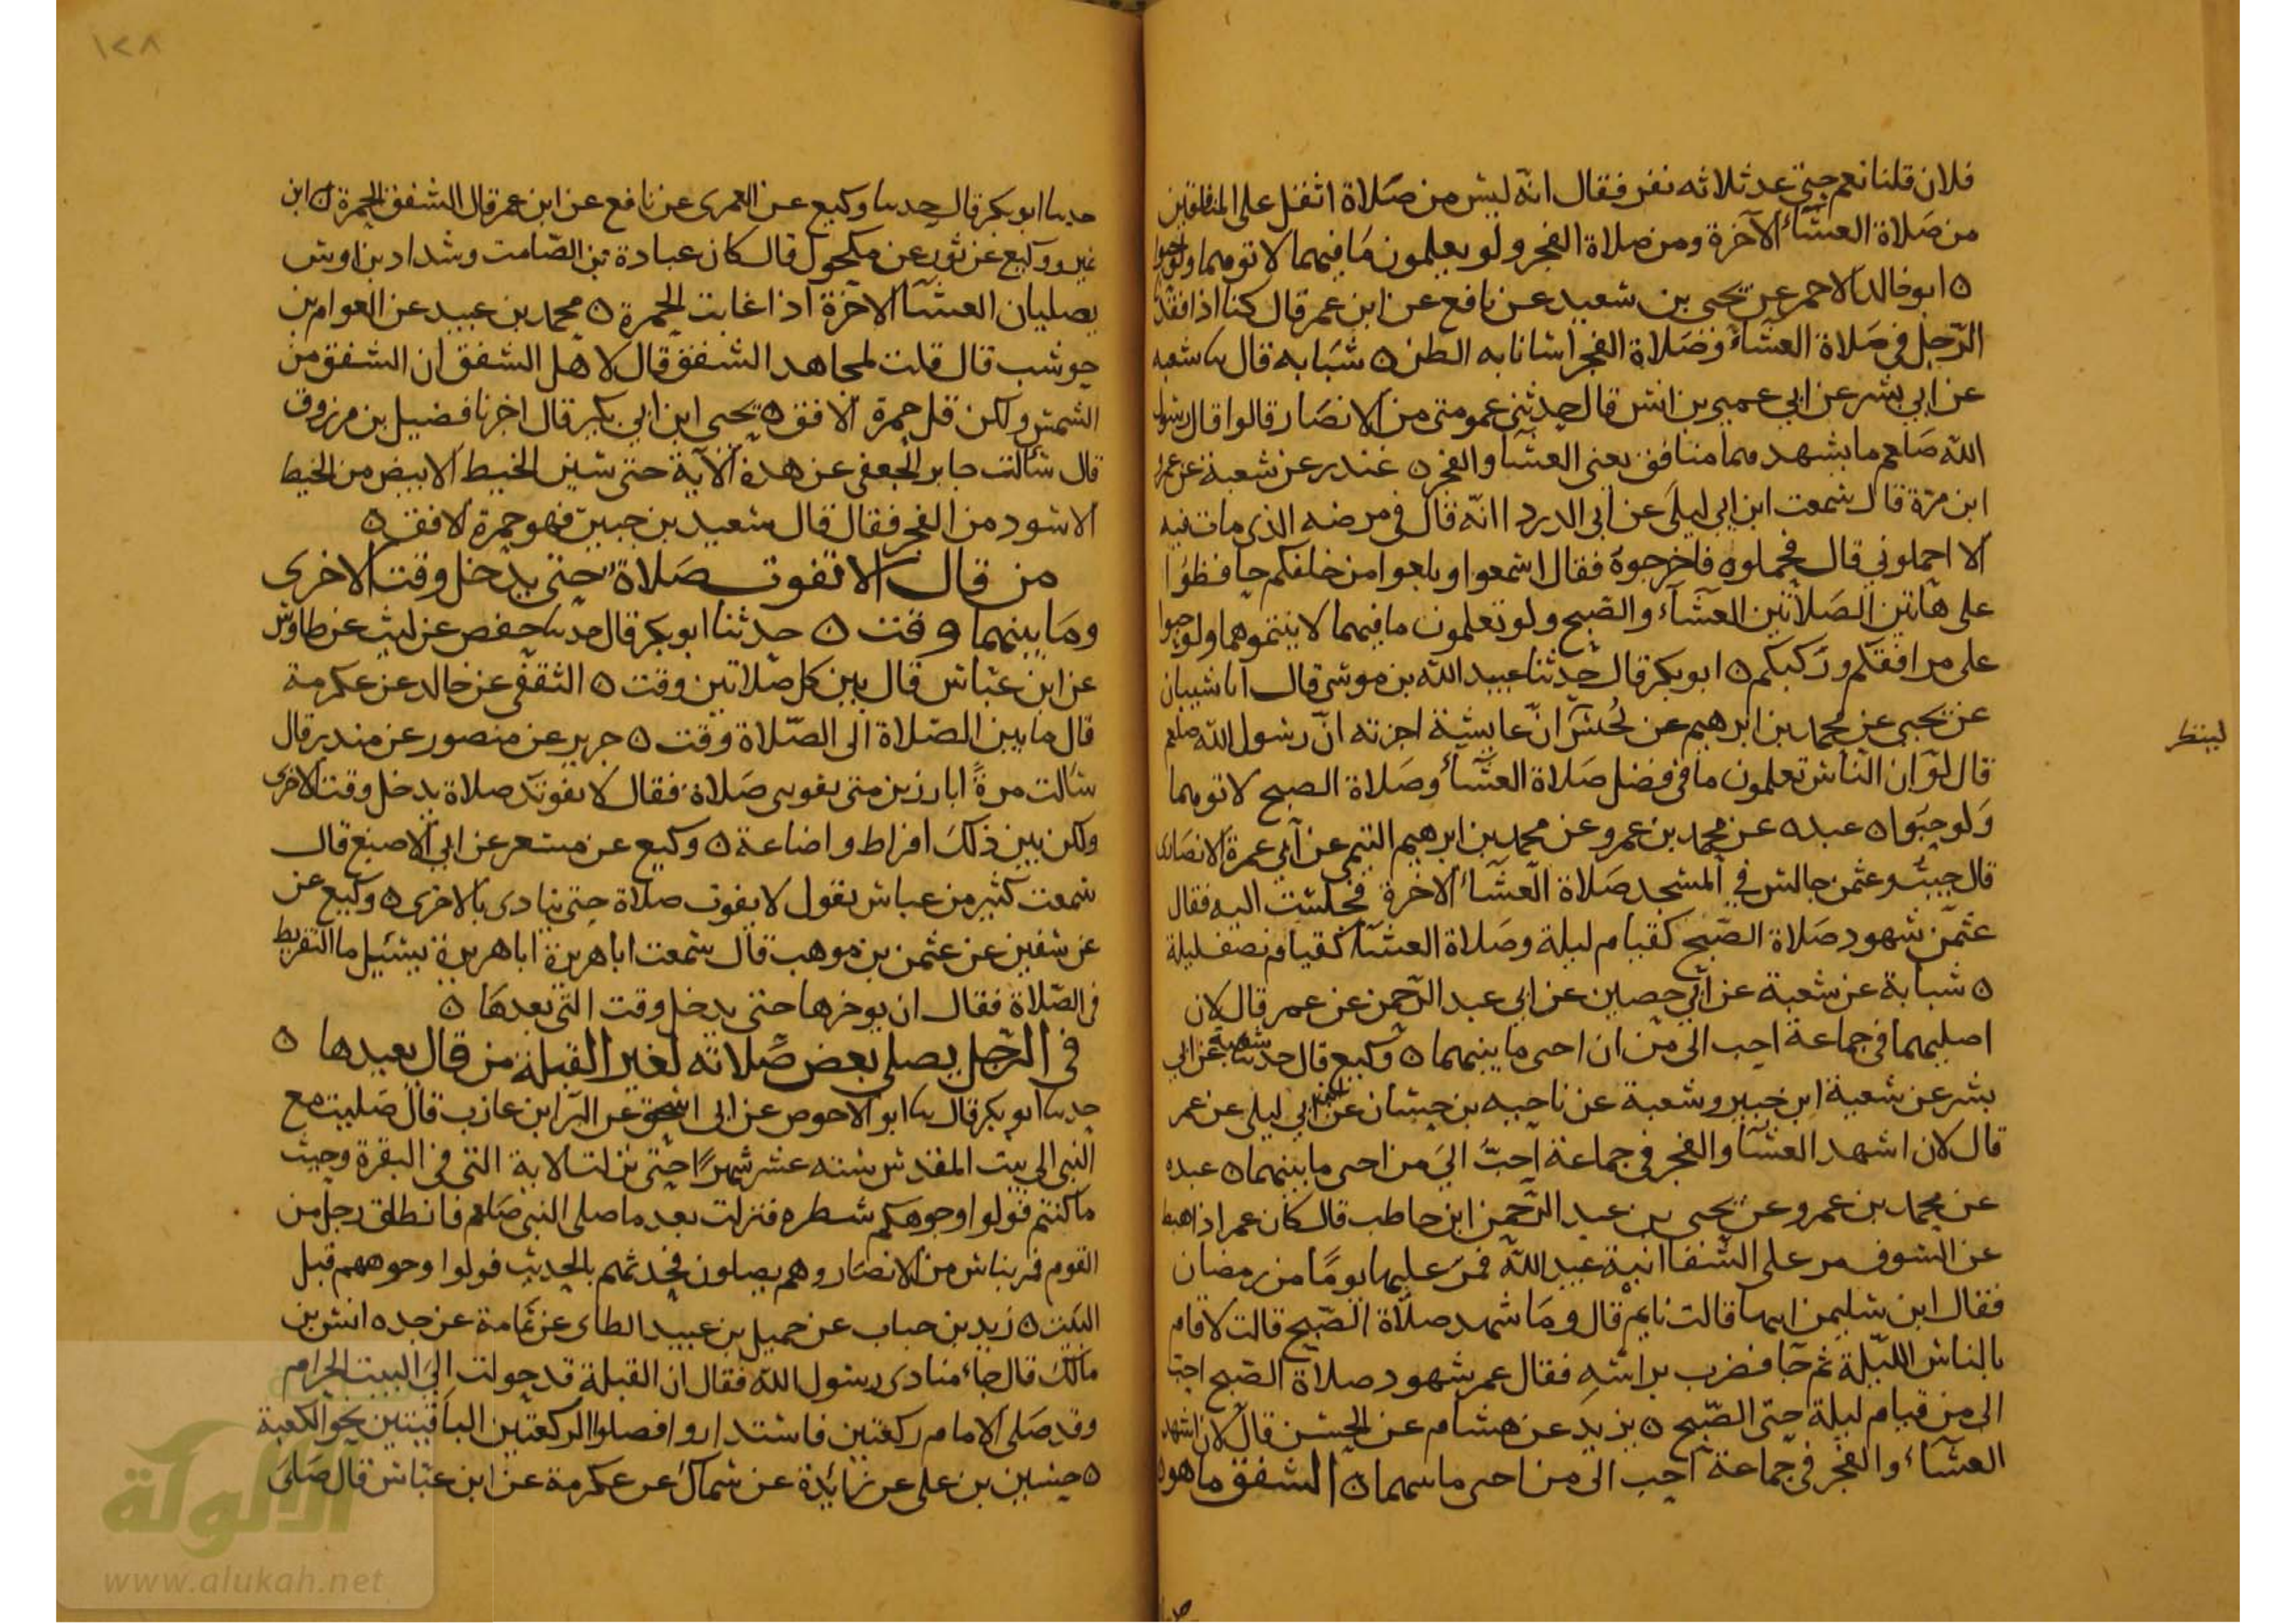 فلان قلنا نعم حتى عد ثلاثه نفر فقال انه ليس من صلاة اثقل على المنافقين
من صلاة العشاء الآخرة ومن صلاة الفجر ولو يعلمون ما فيهما لاتوهما ولو حبوا
ه ابو خالد الاحمر عن يحيى بن سعيد عن نافع عن ابن عمر قال كنا اذا فقدنا
الرجل في صلاة العشاء وصلاة الفجر اسانا به الظن ه شبابه قال سا شعبه
عن ابي بشر عن ابي عمير بن انس قال حدثنى عمومتى من الانصار قالوا قال رسول
الله صلعم ما يشهدهما منافق يعنى العشا والفجر ه غندر عن شعبة عن عمرو
ابن مرة قال سمعت ابن ابي ليلى عن ابى الدردا انه قال في مرضه الذى مات فيه
الا احملونى قال فحملوه فاخرجوه فقال اسمعوا وبلغوا من خلفكم حافظوا
على هاتين الصلاتين العشآء والصبح ولو تعلمون ما فيهما لاتيتموهما ولو حبوا
على مرافقكم وركبكم ه ابو بكر قال حدثنا عبيد الله بن موسى قال انا شيبان
عن يحيى عن محمد بن ابرهيم عن يُحنس ان عايشة اخبرته ان رسول الله صلعم
قال لو ان الناس تعلمون ما في فضل صلاة العشاء وصلاة الصبح لاتوهما
ولو حبوا ه عبده عن محمد بن عمرو عن محمد بن ابرهيم التيمى عن ابي عمرة الانصارى
قال جيت وعثمن جالس في المسجد صلاة العشاء الاخرة فجلست اليه فقال
عثمن شهود صلاة الصبح كقيام ليلة وصلاة العشا كقيام نصف ليلة
ه شبابة عن شعبة عن ابي حصين عن ابي عبد الرحمن عن عمر قال لان
اصليهما في جماعة احب الى من ان احيى ما بينهما ه وكيع قال حدثنا شعبة عن ابي
بشر عن شعبة ابن خبير وشعبة عن ناحيه بن حسان عن ابي ليلى عن عمر
قال لان اشهد العشا والفجر في جماعة احبُّ اليَ من احيى ما بينهما ه عبده
عن محمد بن عمرو عن يحيى بن عبد الرحمن ابن حاطب قال كان عمر اذا هبط
عن السوف مر على الشفا ابنة عبد الله فمر عليها يومًا من رمضان
فقال ابن سليمن ابنها قالت نايم قال وما شهد صلاة الصبح قالت لا قام
بالناس الليلة ثم جا فضرب براسه فقال عمر شهود صلاة الصبح احب
الى من قيام ليلة حتى الصبح ه يزيد عن هشام عن الحسن قال لان اشهد
العشاء والفجر في جماعة احب الى من احيى ما بينهما ه الشفق ما هو ه
لينظر
١٢٨
حدثنا ابو بكر قال حدثنا وكيع عن العمرى عن نافع عن ابن عمر قال الشفق الحمرة ه ابن
نمير ووكيع عن ثور عن مكحول قال كان عبادة بن الصامت وشداد بن اوس
يصليان العشا الاخرة اذا غابت الحمرة ه محمد بن عبيد عن العوام بن
حوشب قال قلت لمجاهد الشفق قال لا هل الشفق ان الشفق من
الشمس ولكن قل حمرة الافق ه يحيى ابن ابي بكير قال اخبرنا فضيل بن مرزوق
قال سالت جابر الجعفى عن هذه الآية حتى يتبين الخيط الابيض من الخيط
الاسود من الفجر فقال قال سعيد بن جبير فهو حمرة الافق ه
من قال لا تفوت صلاة حتى يدخل وقت الاخرى
وما بينهما وقت ه حدثنا ابو بكر قال حدثنا حفص عن ليث عن طاوس
عن ابن عباس قال بين كل صلاتين وقت ه الثقفى عن خالد عن عكرمة
قال ما بين الصلاة الى الصلاة وقت ه جرير عن منصور عن منذر قال
سالت مرةً ابا رزين متى يفوتى صلاة فقال لا يفوتك صلاة يدخل وقت الاخرى
ولكن بين ذلك افراط واضاعة ه وكيع عن مسعر عن ابي الاصبغ قال
سمعت كثير من عباس يقول لا يفوت صلاة حتى ينادى بالاخرى ه وكيع عن
عن سفين عن عثمن بن موهب قال سمعت اباهريرة اباهريرة يسئيل ما التفريط
في الصلاة فقال ان يوخرها حتى يدخل وقت التى بعدها ه
في الرجل يصلى بعض صلاته لغير القبلة من قال يعيدها ه
حدثنا ابو بكر قال سا ابو الاحوص عن ابى اسحق عن البرا ابن عازب قال صليت مع
النبي الى بيت المقدس سته عشر شهرًا حتى نزلت الاية التى في البقرة وحيث
ما كنتم فولوا وجوهكم شطره فنزلت بعد ما صلى النبى صلعم فانطلق رجل من
القوم فمر بناس من الانصار وهم يصلون فحدثهم بالحديث فولوا وجوههم قبل
البيت ه زيد بن حباب عن جميل بن عبيد الطاى عن ثمامة عن جده انس بن
مالك قال جاء منادى رسول الله فقال ان القبلة قد حولت الى البيت الحرام
وقد صلى الامام ركعتين فاستداروا فصلوا الركعتين الباقيتين نحو الكعبة
ه حسين بن على عن زايدة عن سماك عن عكرمة عن ابن عباس قال صلى
الألوكة
www.alukah.net